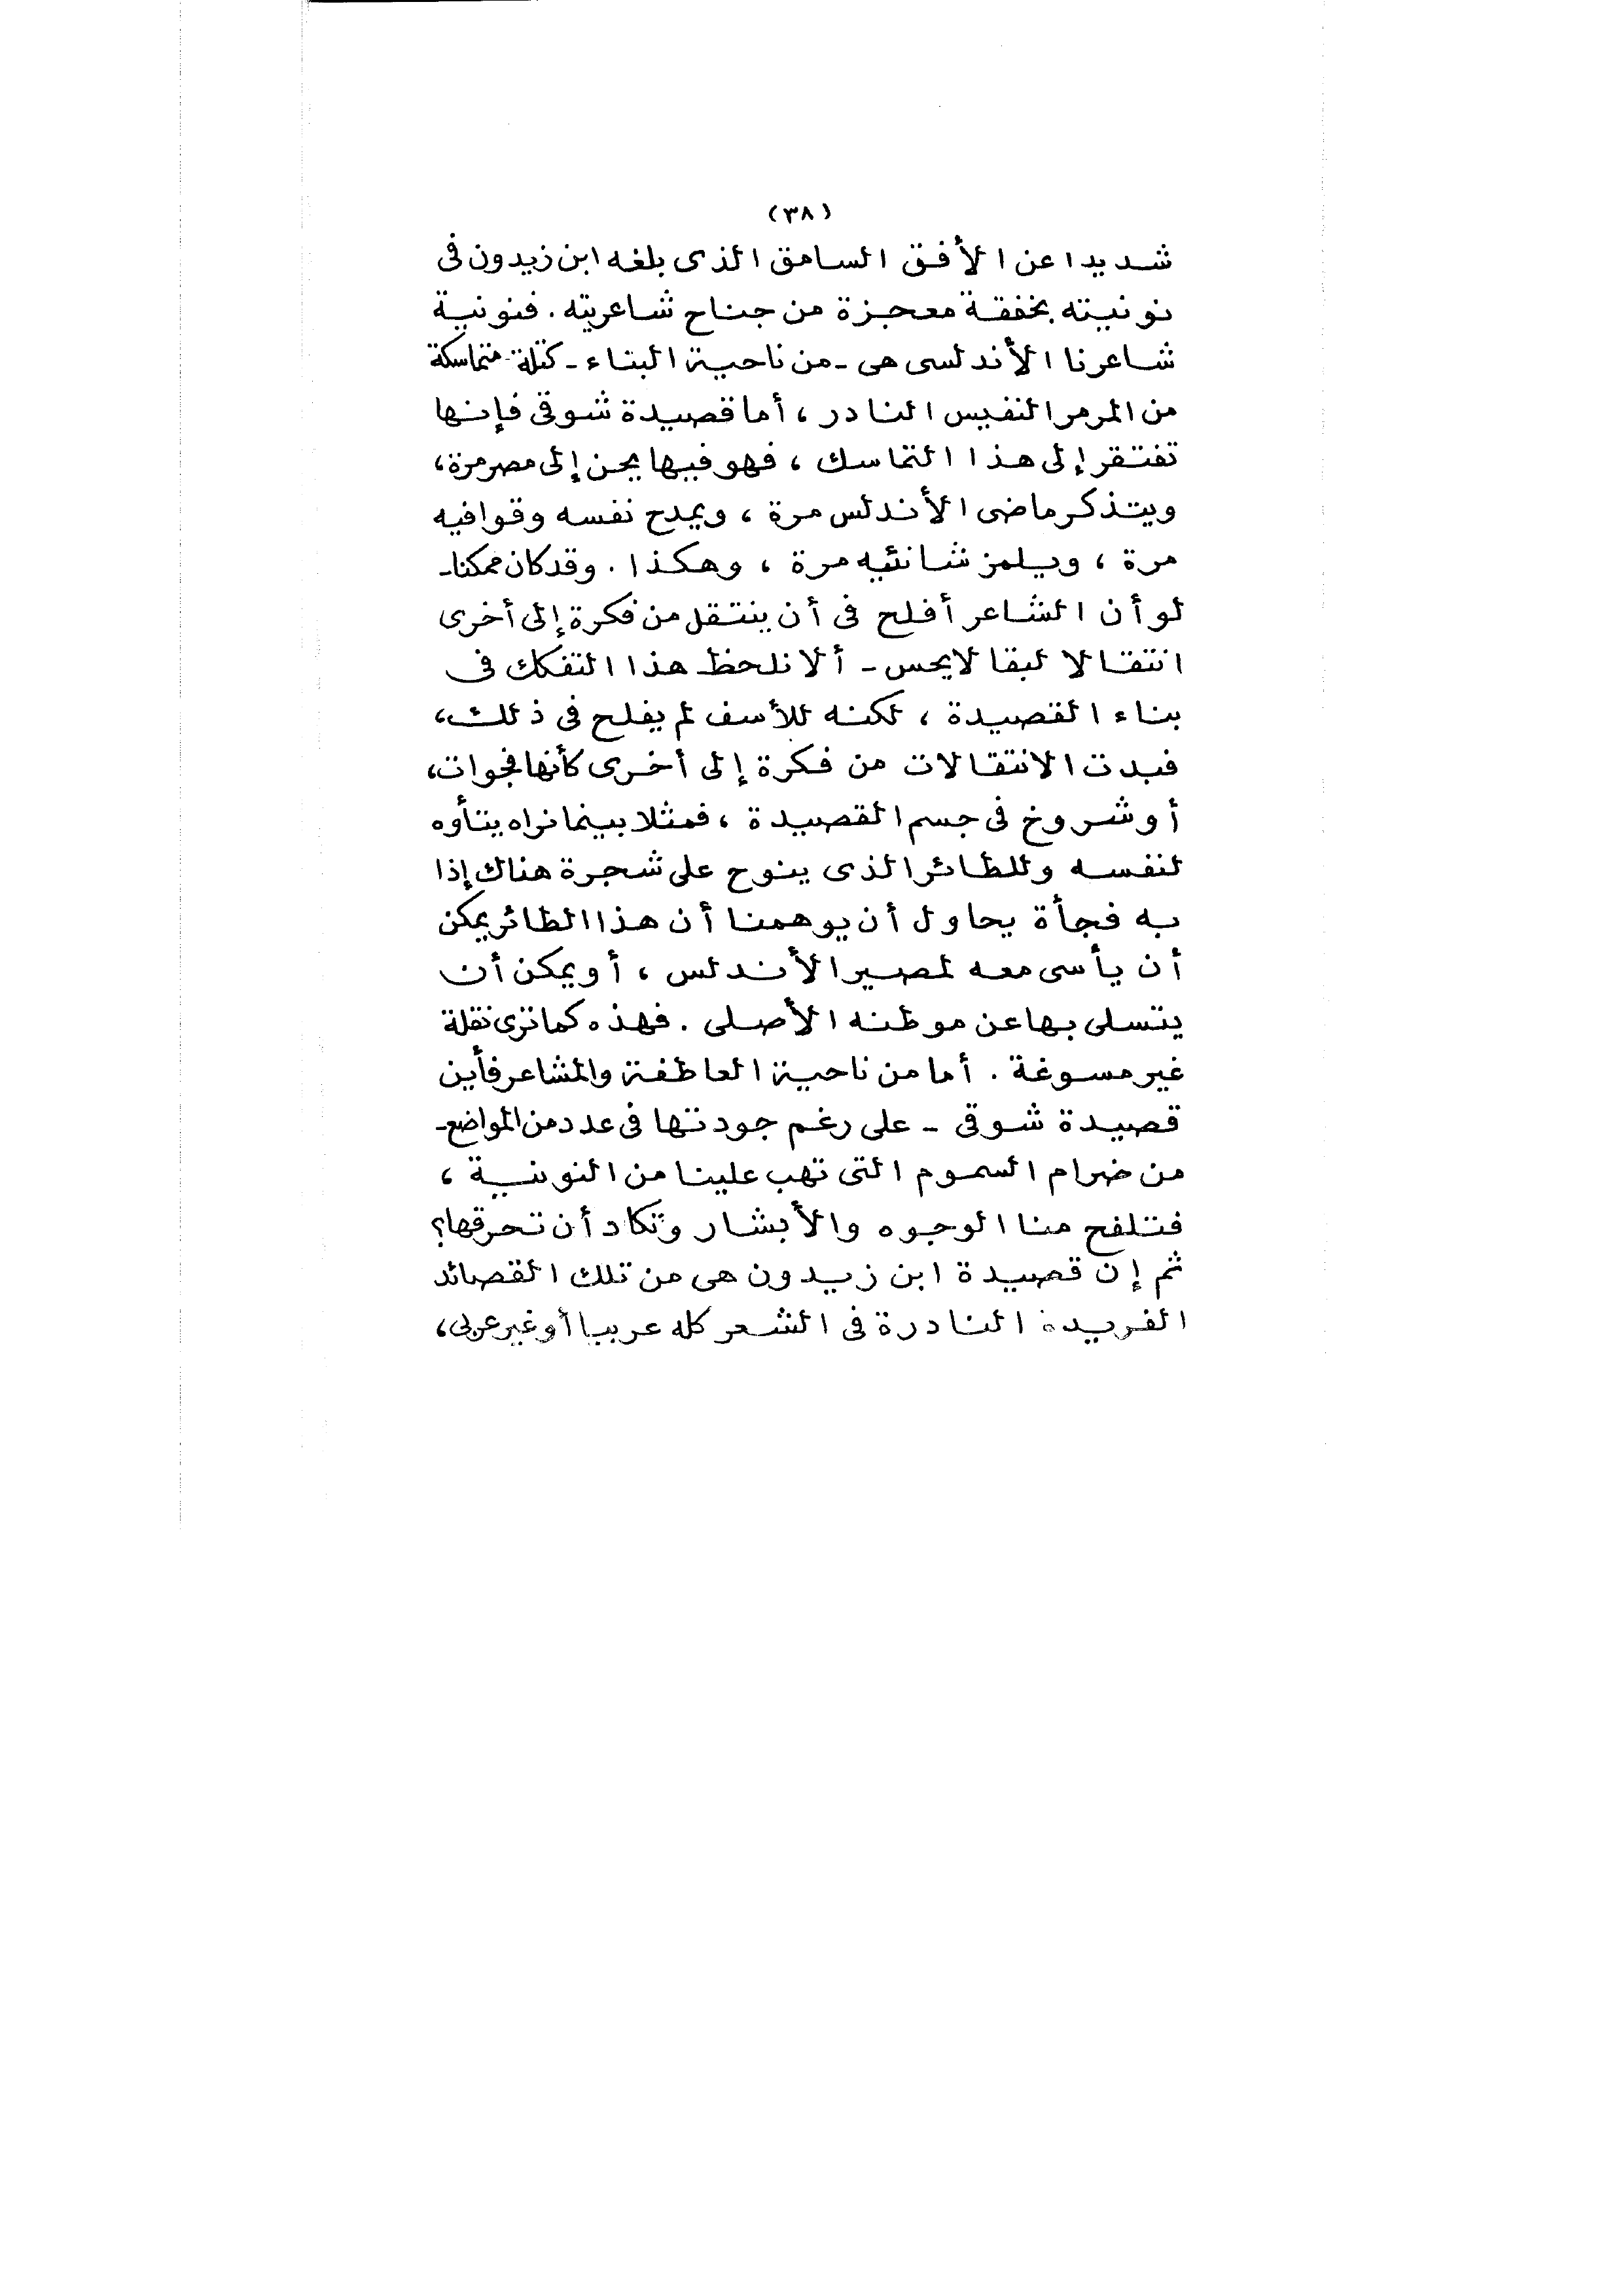 (٣٨)
شديدا عن الأفق السامق الذى بلغه ابن زيدون فى
نونيته بخفقة معجزة من جناح شاعريته . فنونية
شاعرنا الأندلسى هى - من ناحية البناء - كتلة متماسكة
من المرمر النفيس النادر ، أما قصيدة شوقى فإنها
تفتقر إلى هذا التماسك ، فهو فيها يحن إلى مصر مرة ،
ويتذكر ماضى الأندلس مرة ، ويمدح نفسه وقوافيه
مرة ، ويلمز شانئيه مرة ، وهكذا . وقد كان ممكنا -
لو أن الشاعر أفلح فى أن ينتقل من فكرة إلى أخرى
انتقالا لبقا لايحس - ألا نلحظ هذا التفكك فى
بناء القصيدة ، لكنه للأسف لم يفلح فى ذلك ،
فبدت الانتقالات من فكرة إلى أخرى كأنها فجوات ،
أو شروخ فى جسم القصيدة ، فمثلا بينما نراه يتأوه
لنفسه وللطائر الذى ينوح على شجرة هناك إذا
به فجأة يحاول أن يوهمنا أن هذا الطائر يمكن
أن يأسى معه لمصير الأندلس ، أو يمكن أن
يتسلى بها عن موطنه الأصلى . فهذه كما ترى نقلة
غير مسوغة . أما من ناحية العاطفة والمشاعر فأين
قصيدة شوقى - على رغم جودتها فى عدد من المواضع -
من ضرام السموم التى تهب علينا من النونية ،
فتلفح منا الوجوه والأبشار وتكاد أن تحرقها؟
ثم إن قصيدة ابن زيدون هى من تلك القصائد
الفريدة النادرة فى الشعر كله عربيا أو غير عربى ،